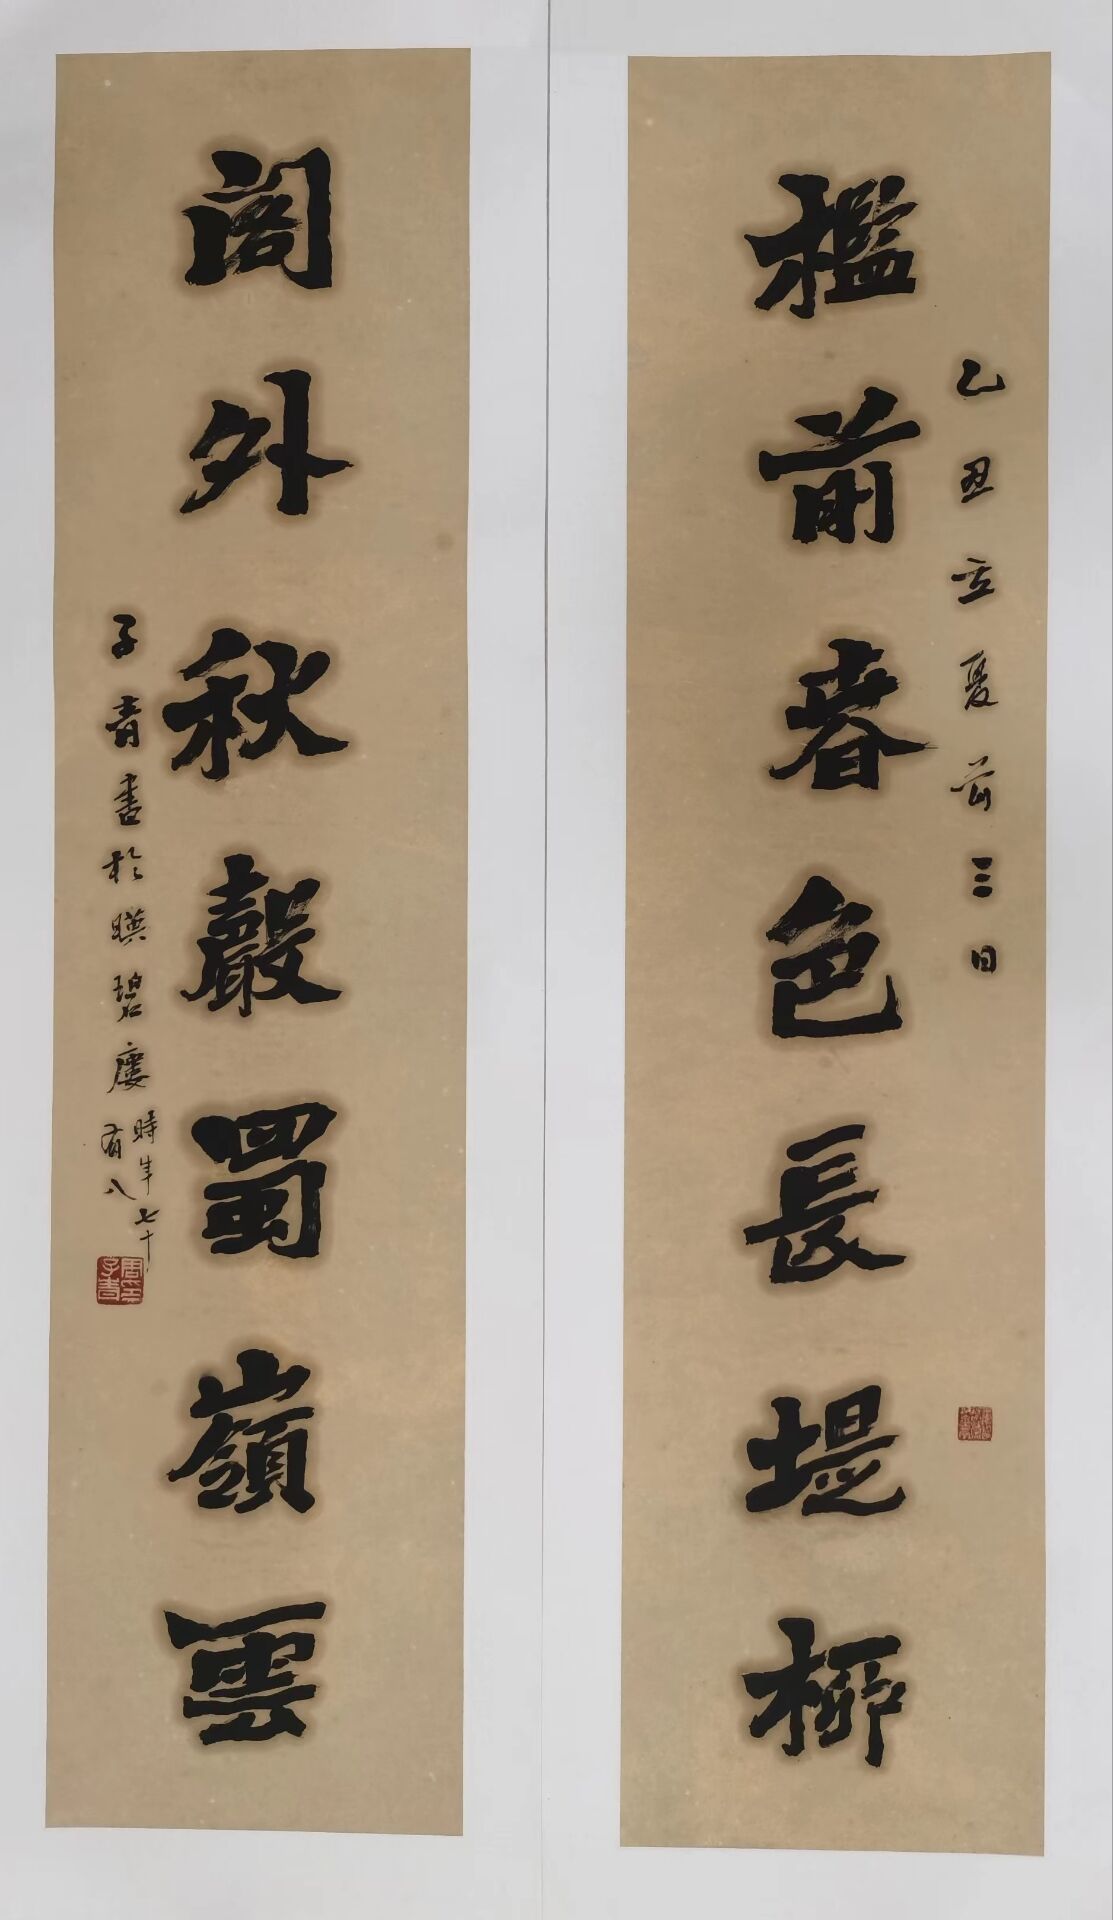 檻前春色長堤柳
乙丑立夏前三日
閣外秋聲蜀嶺雲
子青書於暎碧廔
時年七十
有八
周子青印